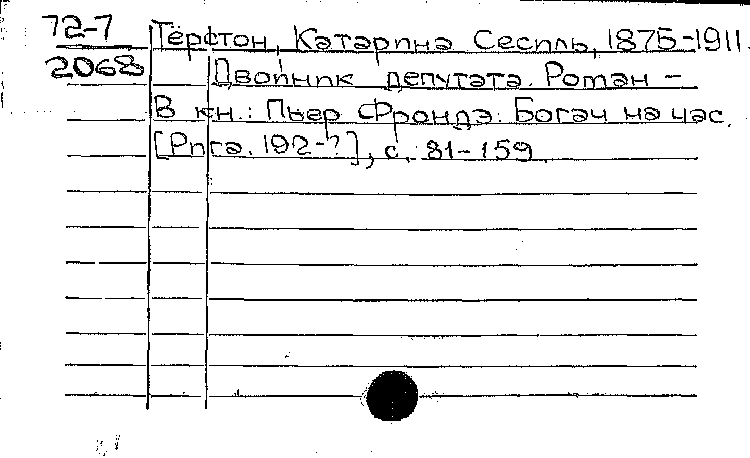 72-7 Тёрстон, Катарина Сесиль, 1875-1911.
2068 Двойник депутата. Роман –
В кн.: Пьер Фрондэ. Богач на час.
[Рига. 192-?], с. 81-159